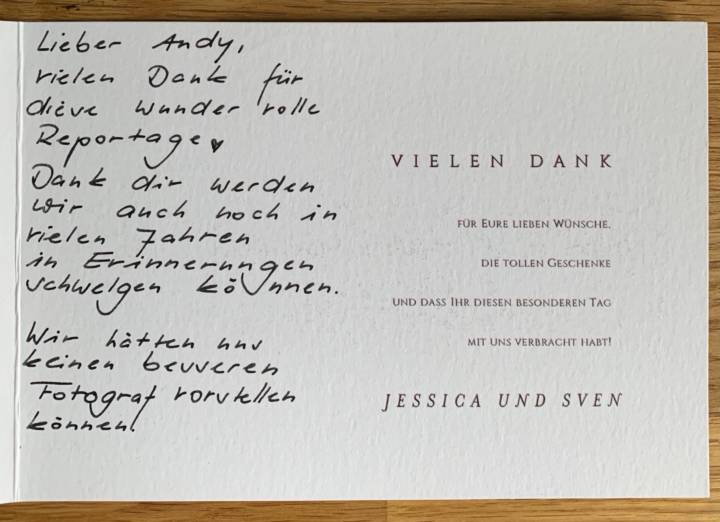 Lieber Andy,
vielen Dank für
diese wundervolle
Reportage♥
Dank dir werden
wir auch noch in
vielen Jahren
in Erinnerungen
schwelgen können.
Wir hätten uns
keinen besseren
Fotograf vorstellen
können!
VIELEN DANK
FÜR EURE LIEBEN WÜNSCHE,
DIE TOLLEN GESCHENKE
UND DASS IHR DIESEN BESONDEREN TAG
MIT UNS VERBRACHT HABT!
JESSICA UND SVEN